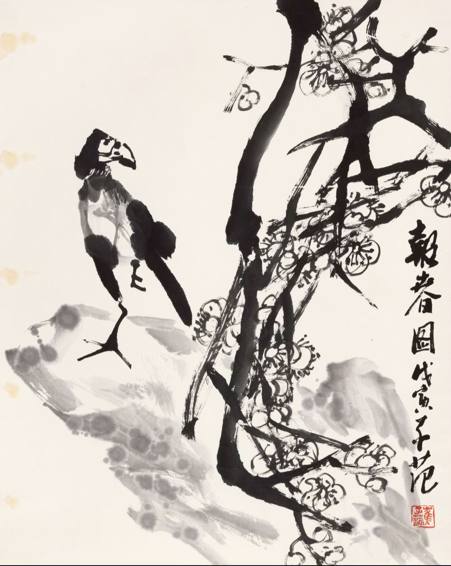 報春圖戊寅子范